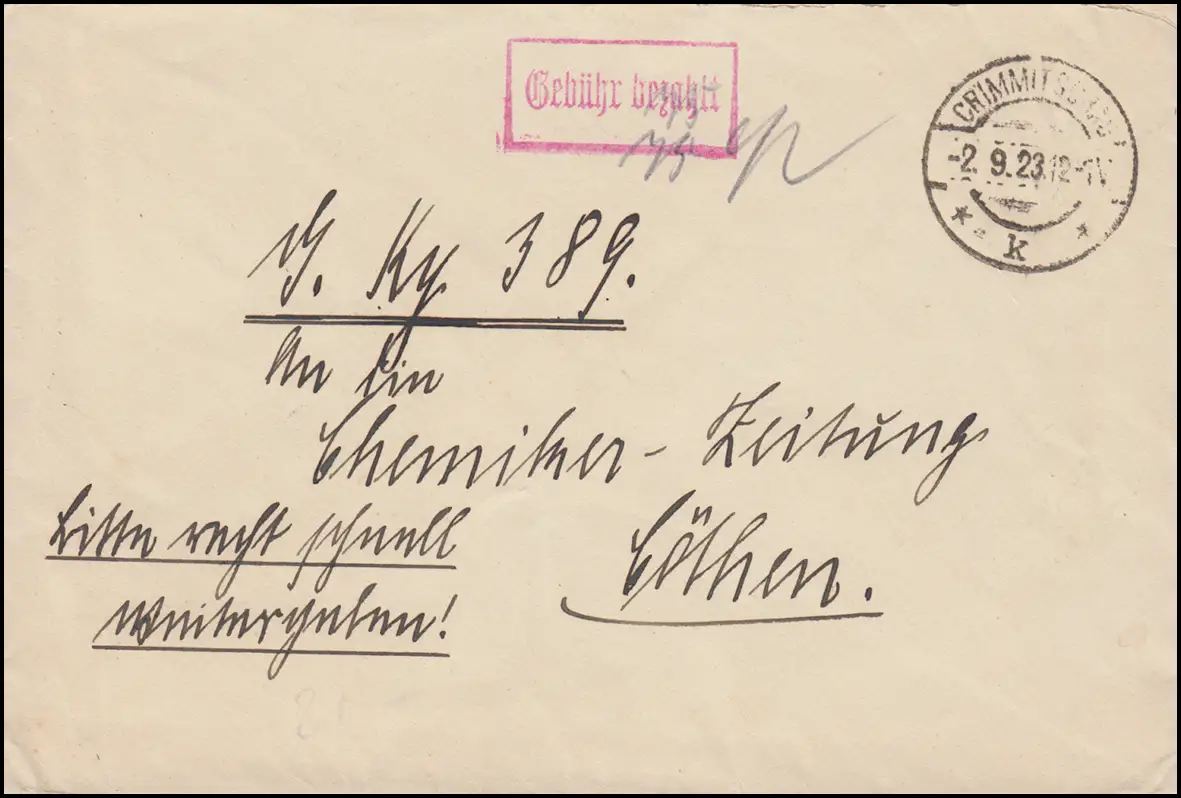 Gebühr bezahlt
CRIMMITSCHAU
-2. 9.23.12-1V
* k *
J. Ky. 389.
An die
Chemiker-Zeitung
Cöthen.
Bitte recht schnell
weitergeben!